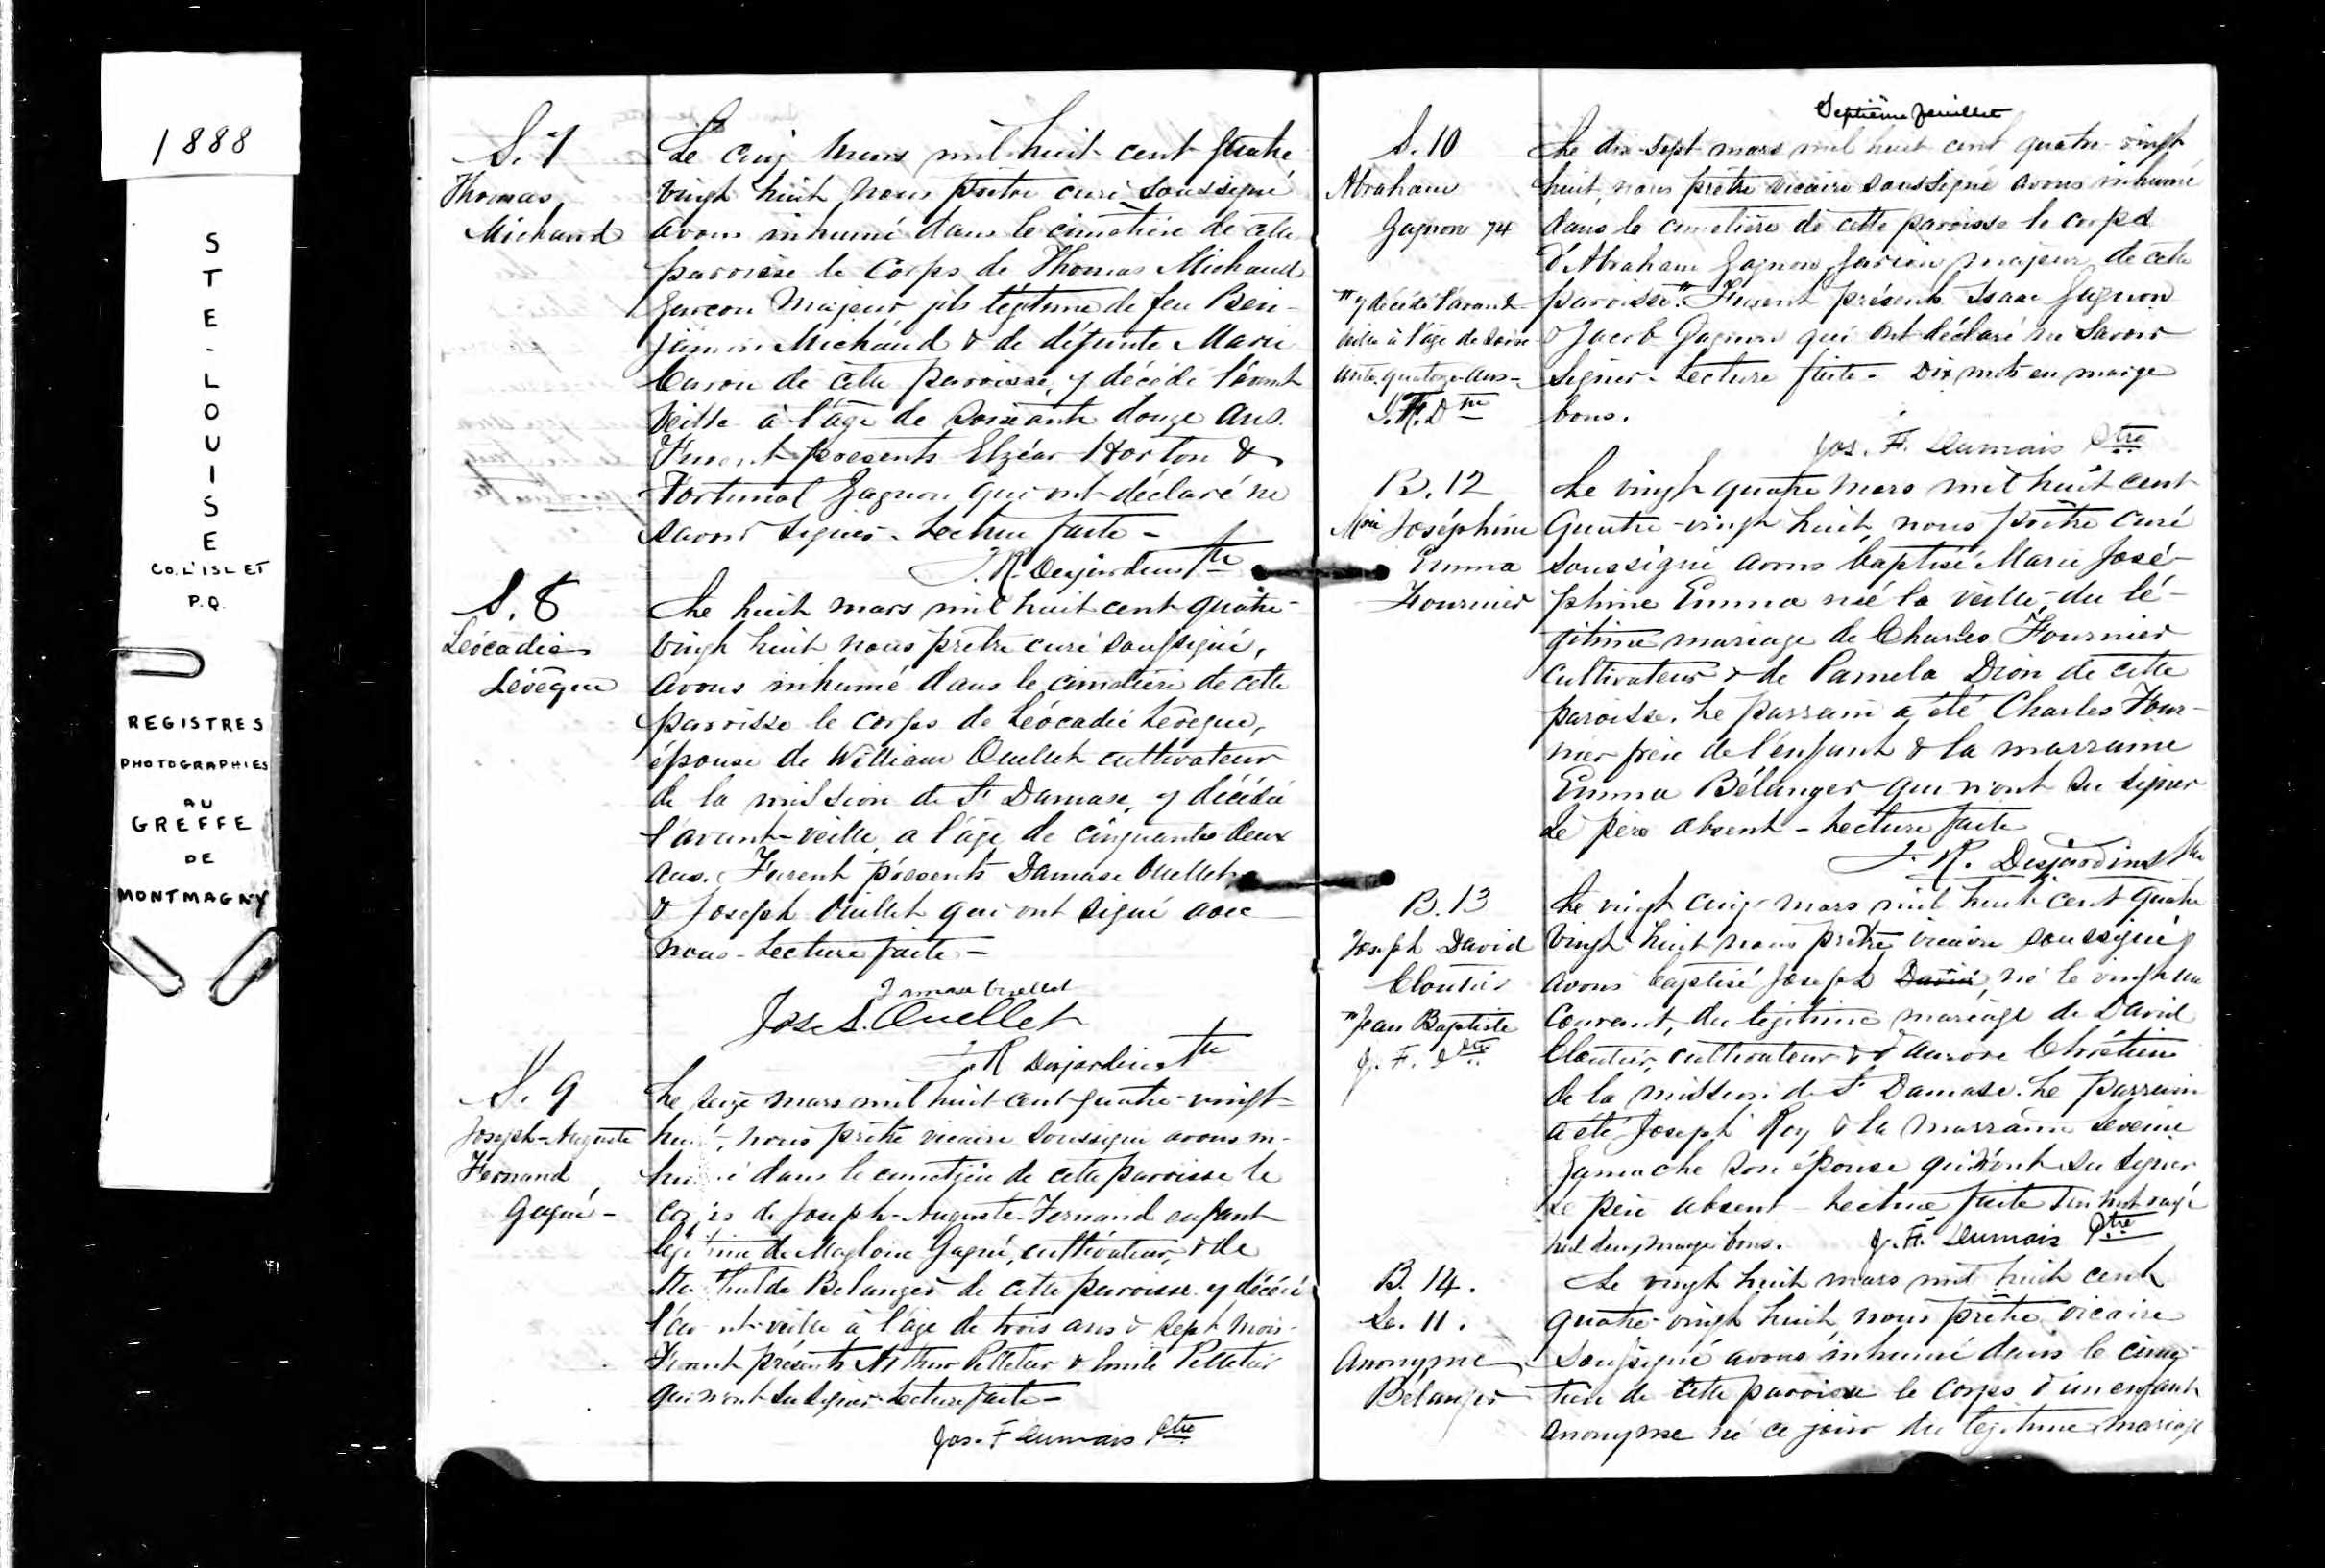 1888
STE-LOUISE
CO. L'ISLET
P.Q.
REGISTRES
PHOTOGRAPHIES
AU
GREFFE
DE
MONTMAGNY
S. 7
Thomas
Michaud
Le cinq mars mil huit cent quatre
vingt huit nous prêtre curé soussigné
avons inhumé dans le cimetière de cette
paroisse le corps de Thomas Michaud
garçon majeur fils légitime de feu Ben-
jamin Michaud & de défunte Marie
Caron de cette paroisse, y décédé l'avant
veille à l'âge de soixante douze ans.
Furent présents Elzéar Horton &
Fortunat Gagnon qui ont déclaré ne
savoir signer. Lecture faite -
J. R. Desjardins Ptre
S. 8
Léocadie
Levêque
Le huit mars mil huit cent quatre-
vingt huit nous prêtre curé soussigné,
avons inhumé dans le cimetière de cette
paroisse le corps de Léocadie Levêque,
épouse de William Ouellet cultivateur
de la mission de St Damase, y décédée
l'avant-veille, a l'âge de cinquante deux
ans. Furent présents Damase Ouellet
& Joseph Ouellet qui ont signé avec
nous - Lecture faite -
Damase Ouellet
Jos. S. Ouellet
J. R Desjardins Ptre
S. 9
Joseph-Auguste
Fernand
Gagné -
Le seize mars mil huit cent quatre-vingt-
hui, nous prêtre vicaire soussigné avons in-
hu é dans le cimetière de cette paroisse le
co s de Joseph-Auguste-Fernand enfant
légitime de Magloire Gagné, cultivateur, & de
Ma hilde Belanger de cette paroisse y décédé
l'av nt-veille à l'âge de trois ans & sept mois -
Furent présents Arthur Pelletier & Emile Pelletier
qui n'ont su signer - Lecture faite -
Jos. F Dumais Ptre
Septième feuillet
S. 10
Abraham
Gagnon 74
" y décédé l'avant-
veille à l'âge de soix-
ante quatorze ans -
J. F. D Ptre
Le dix-sept mars mil huit cent quatre-vingt
huit, nous prêtre vicaire soussigné avons inhumé
dans le cimetière de cette paroisse le corps
d'Abraham Gagnon, garçon majeur de cette
paroisse." Furent présents Isaac Gagnon
& Jacob Gagnon qui ont déclaré ne savoir
signer - Lecture faite - Dix mots en marge
bons.
Jos. F. Dumais Ptre
B. 12
Mrie Joséphine
Emma
Fournier
Le vingt quatre mars mil huit cent
quatre-vingt huit, nous prêtre curé
soussigné avons baptisé Marie José-
phine Emma née la veille, du lé-
gitime mariage de Charles Fournier
cultivateur & de Pamela Dion de cette
paroisse. Le parrain a été Charles Four-
nier frère de l'enfant & la marraine
Emma Bélanger qui n'ont su signer
Le père absent - Lecture faite
J. R. Desjardins Ptre
B. 13
Joseph David
Cloutier
" Jean Baptiste
J. F. D Ptre
Le vingt cinq mars mil huit cent quatre
vingt huit nous prêtre vicaire soussigné
avons baptisé Joseph David, né le vingt un
courant, du légitime mariage de David
Cloutier, cultivateur & d'Aurore Chrétien
de la mission de St Damase. Le parrain
a été Joseph Roy & la marraine Severine
Gamache son épouse qui n'ont su signer
Le père absent - Lecture faite Un mot rayé
nul deux marge bons. J. F. Dumais Ptre
B. 14.
Se. 11.
Anonyme
Belanger
Le vingt huit mars mil huit cent
quatre-vingt huit, nous prêtre vicaire
soussigné avons inhumé dans le cime-
tière de cette paroisse le corps d'un enfant
anonyme né ce jour du légitime mariage